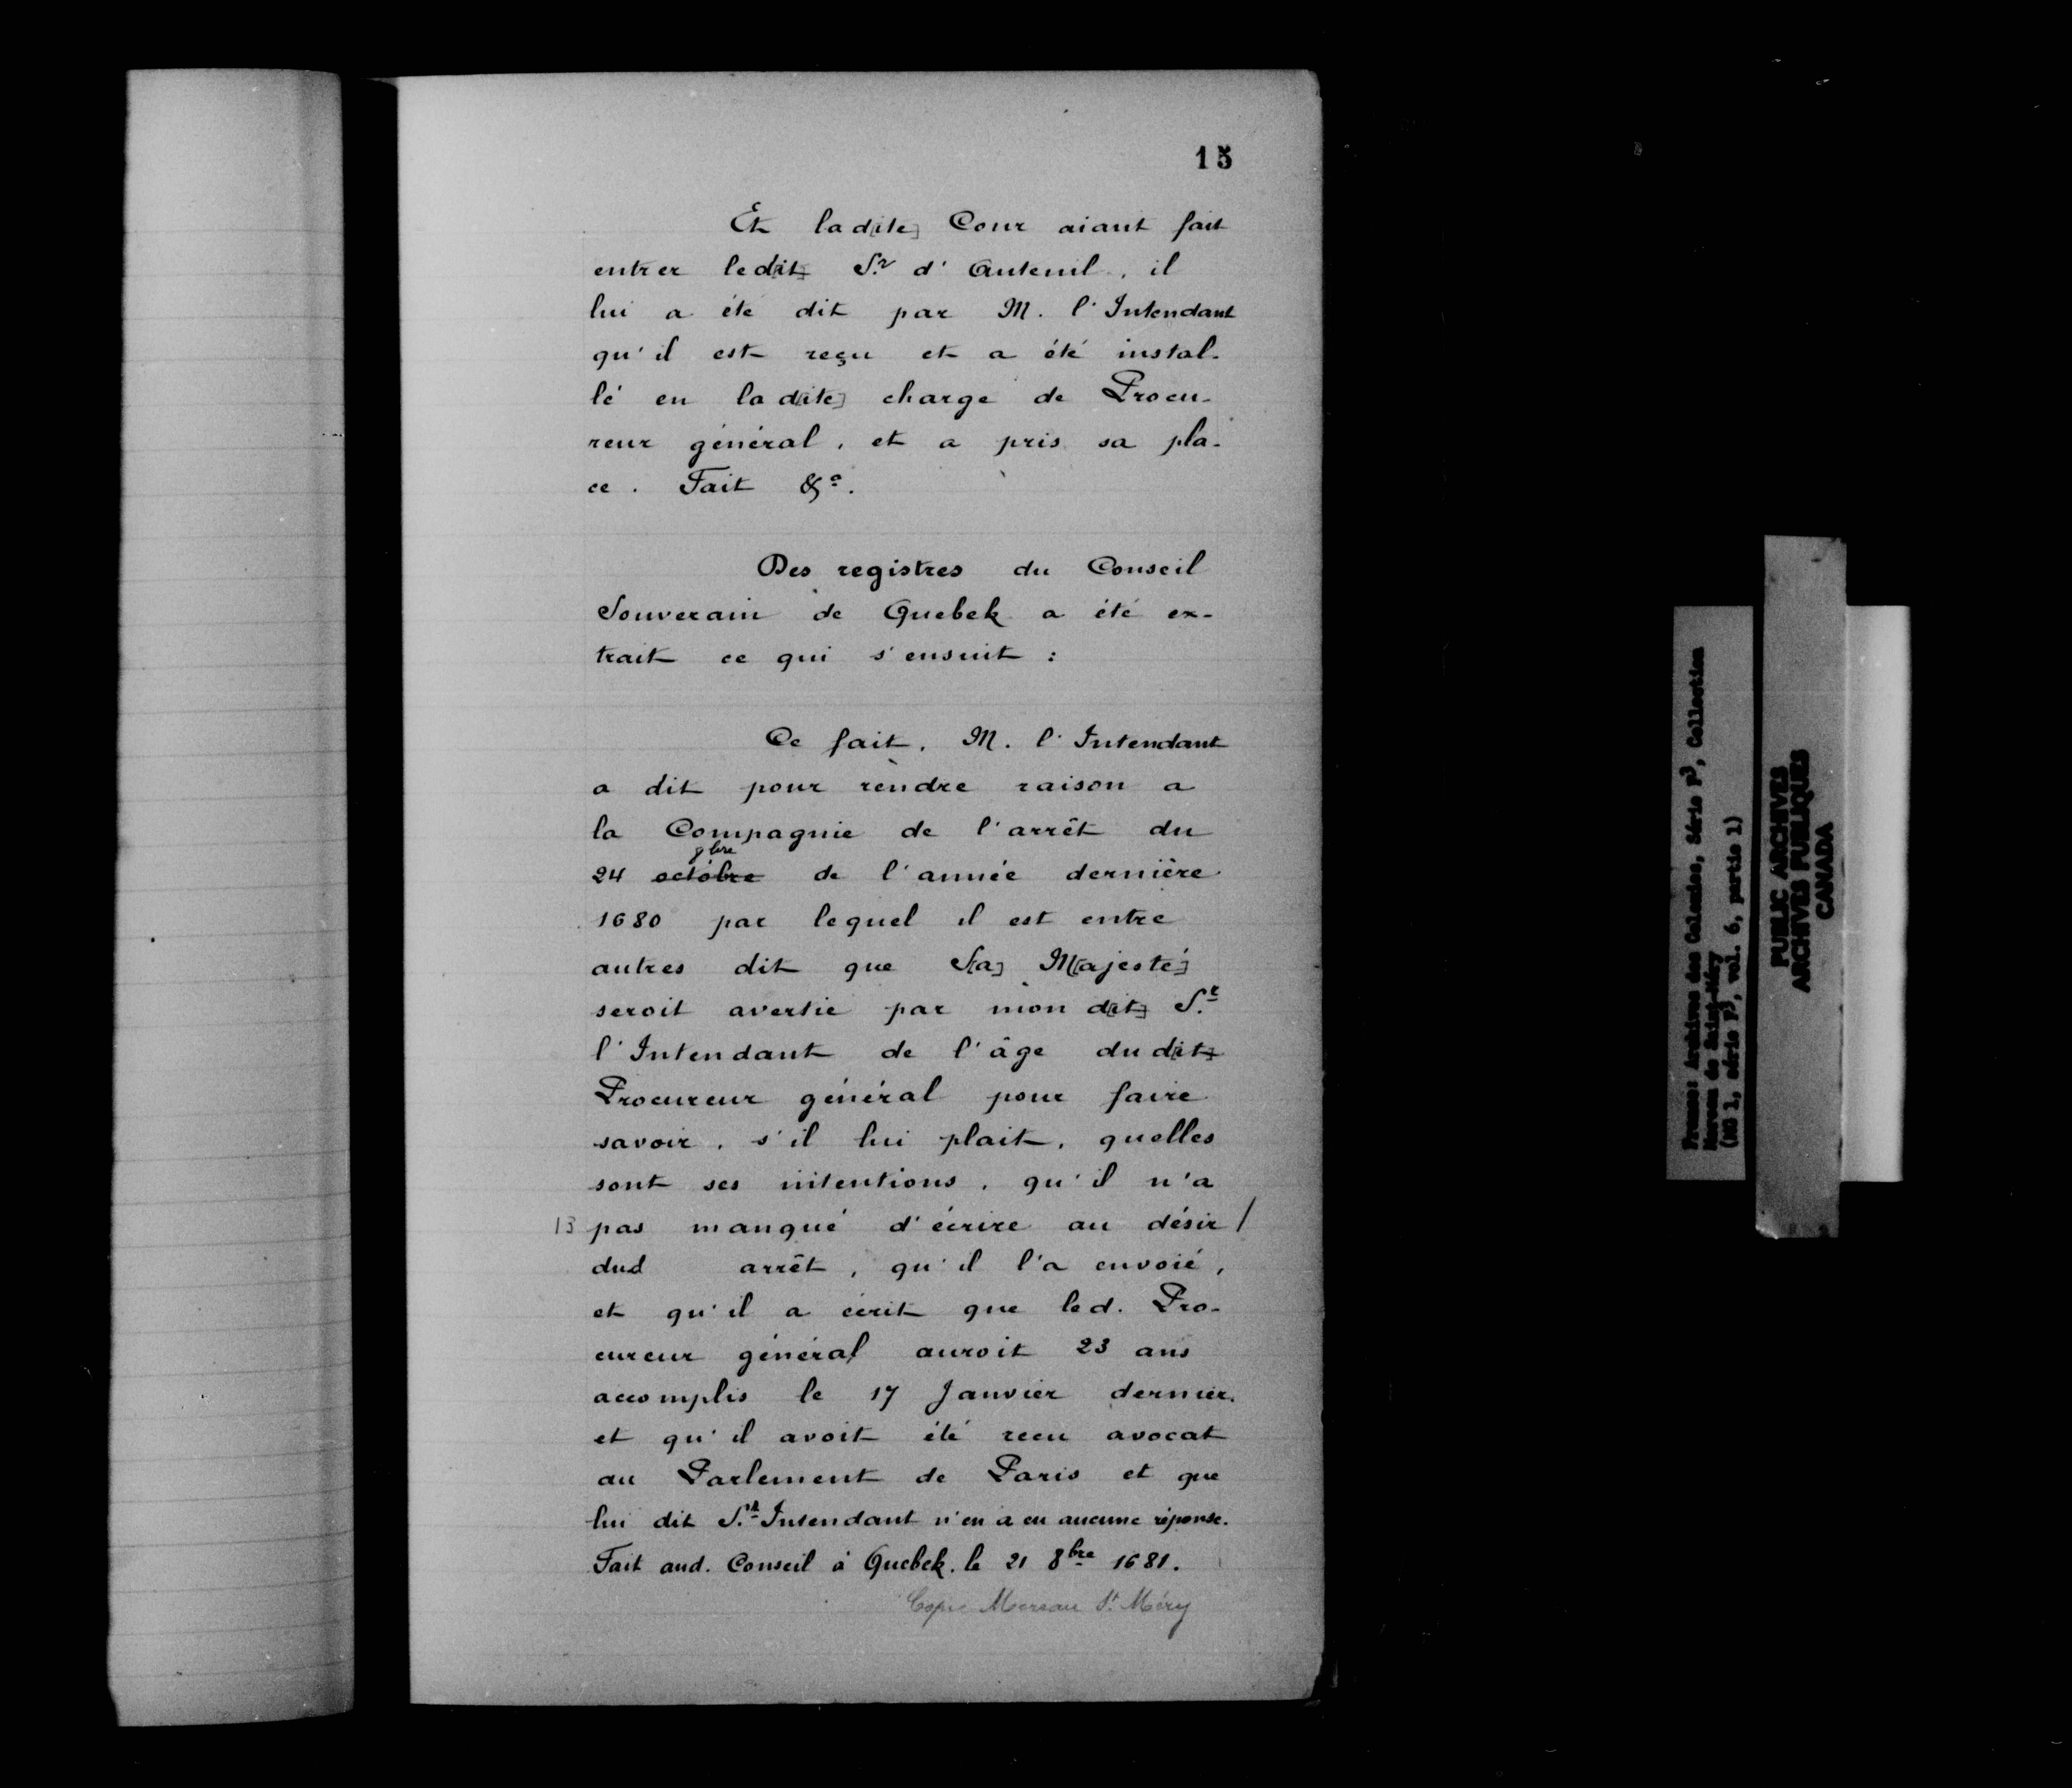 15
Et lad[ite] Cour aiant fait
entrer led[it] S.r d'Auteuil, il
lui a été dit par M. l'Intendant
qu'il est reçu et a été instal-
lé en lad[ite] charge de Procu-
reur général, et a pris sa pla-
ce. Fait &a.
Des registres du Conseil
Souverain de Quebek a été ex-
trait ce qui s'ensuit :
Ce fait, M. l'Intendant
a dit pour rendre raison a
la Compagnie de l'arrêt du
9bre
24 octobre de l'année dernière
1680 par lequel il est entre
autres dit que S[a] M[ajesté]
seroit avertie par mon d[it] S.r
l'Intendant de l'âge dud[it]
Procureur général pour faire
savoir, s'il lui plait, quelles
sont ses intentions, qu'il n'a
13 pas manqué d'écrire au désir /
dud arrêt, qu'il l'a envoié,
et qu'il a écrit que led. Pro-
cureur général auroit 23 ans
accomplis le 17 Janvier dernier.
et qu'il avoit été recu avocat
au Parlement de Paris et que
lui dit S.r Intendant n'en a eu aucune réponse.
Fait aud. Conseil à Quebek, le 21 8bre 1681.
Copie Moreau St Méry
France: Archives des Colonies, Série F3, Collection
Moreau de Saint-Méry
(MG 1, série F3, vol. 6, partie 1)
PUBLIC ARCHIVES
ARCHIVES PUBLIQUES
CANADA